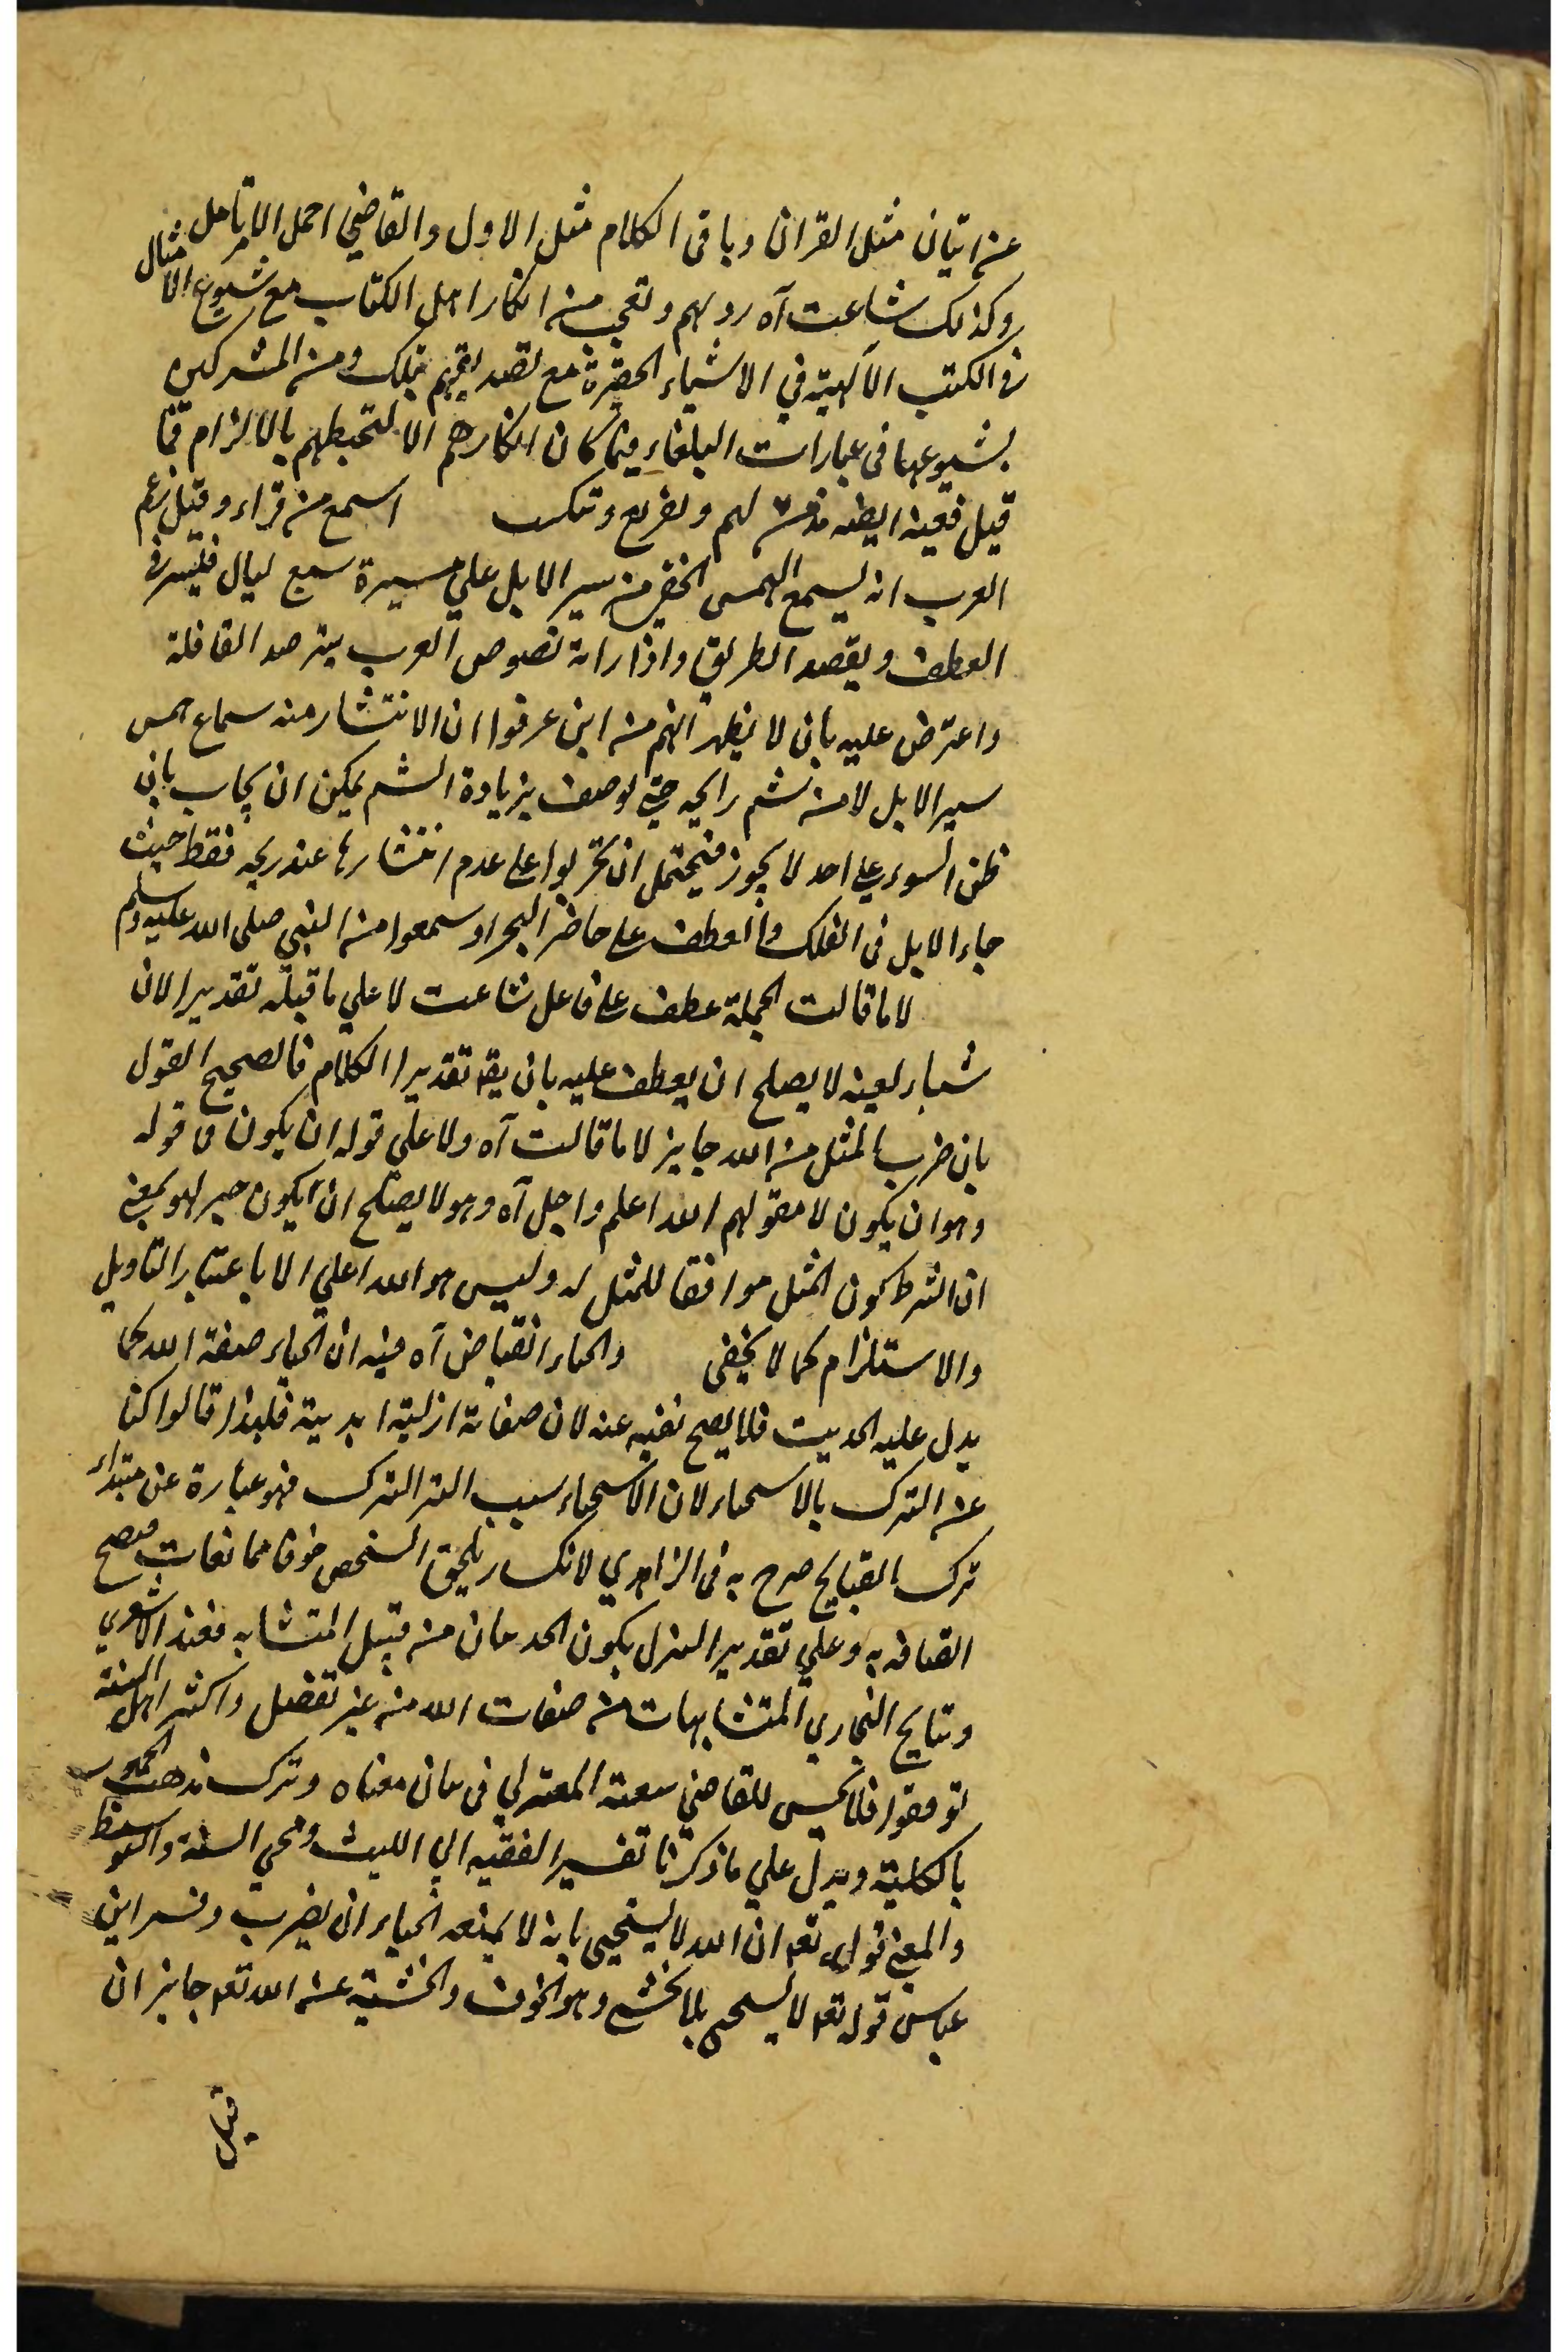 عن اتيان مثل القران وباقى الكلام مثل الاول والقاضي احمل الامر تامل
وكذلك شاعت آه رد لهم وتعجب من انكار اهل الكتاب مع شيوع الامثال
فى الكتب الالهية في الاشياء الحقيرة مع تصديقهم بتلك ومن المشركين
بشيوعها فى عبارات البلغاء فما كان انكارهم الا لتخبطهم بالالزام فما
قيل ففيه ايضا لهم وتقريع اسمع من قراد وقيل زعم
العرب انه ليسمع الهمس الخفى من سير الابل على مسيرة سبع ليال فيسير فى
العطف ويقصد الطريق واذا راته لصوص العرب يترصد القافلة
واعترض عليه بان لا يظهر انهم من اين عرفوا ان الانتشار منه سماع همس
سير الابل لا من شم رايحه حتى يوصف بزيادة الشم يمكن ان يجاب بان
ظن السوء على احد لا يجوز فيحتمل ان على عدم انتشارها عند ريحه فقط حيث
جاء الابل فى الفلك والعطف على او سمعوا من النبى صلى الله عليه وسلم
لا ما قالت الجملة عطف على فاعل شاعت لا على ما قبله تقدير الان
لا يصلح ان يعطف عليه بان تقدير الكلام فالصحيح القول
بان ضرب المثل من الله جايز لا ما قالت آه ولا على قوله ان يكون قوله
وهو ان يكون لا مقولهم الله اعلم واجل آه وهو لا يصلح ان يكون خبر لهو بمعنى
ان الشرط كون المثل موافقا للمثل له وليس هو الله اعلى الا باعتبار التاويل
والاستلزام كما لا يخفى والحياء انقباض آه فيه ان الحياء صفة الله كما
يدل عليه الحديث فلا يصح نفيه عنه لان صفاته ازلية ابدية فلهذا قالوا
عن الترك بالاستحياء لان الاستحياء سبب الترك فهو عبارة عن مبتداء
ترك القبايح صرح به فى الزاهدي لانكسار يلحق الشخص خوفا فيصح
به وعلى تقدير يكون من قبيل المتشابه فعند الاشعري
المتشابهات من صفات الله من غير تفصيل واكثر اهل السنة
توقفوا فلا يحسن للقاضي المعتزلي فى معناه وترك مذهب
بالكلية ويدل على ما ذكرنا تفسير الفقيه ابي الليث ومحي السنة
والمعنى قوله تعه ان الله لا يستحيى بانه لا يمنعه الحياء ان يضرب وفسر ابن
عباس قوله تعه لا يستحى بلا يخشى وهو الخوف والخشية عن الله تعه جايز ان
قيل